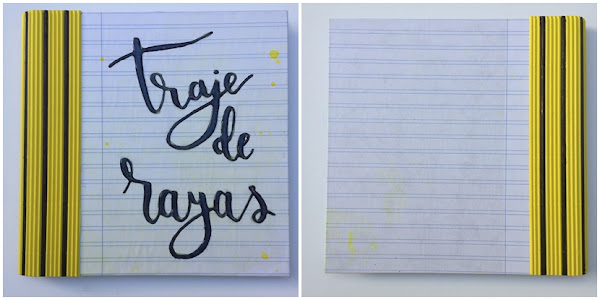 traje
de
rayas